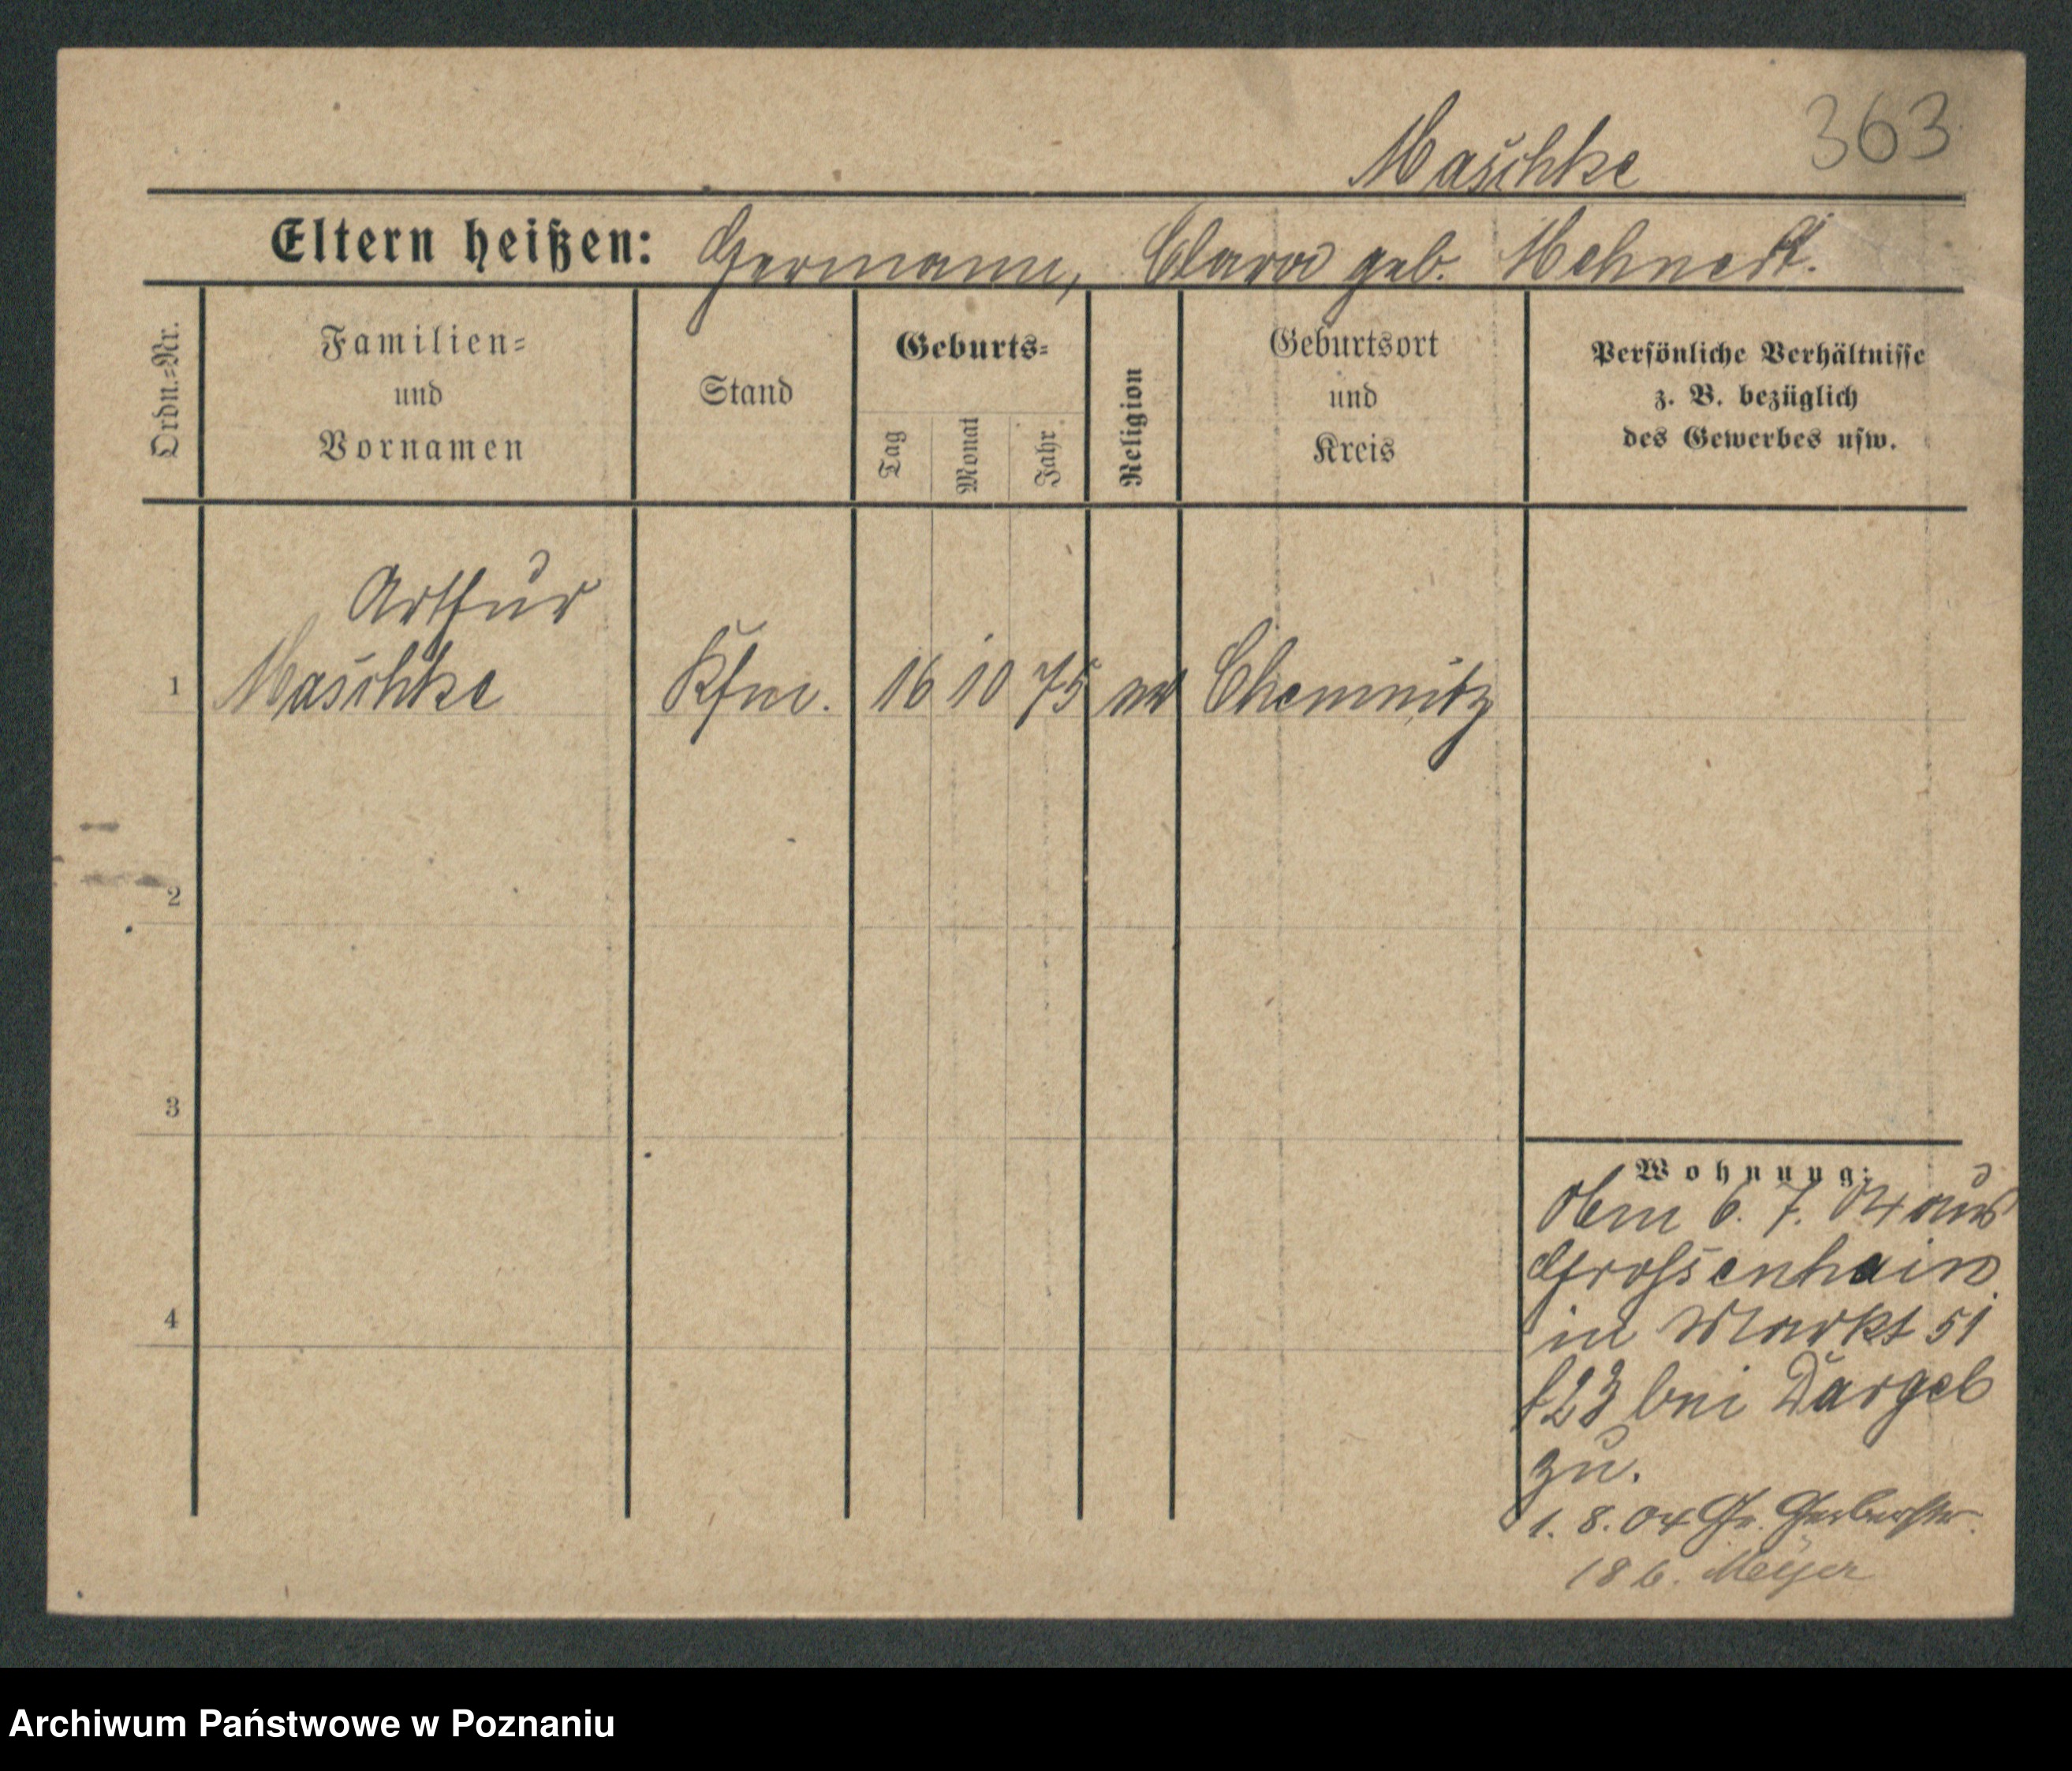 363
Maschke
Eltern heißen: Hermann, Clara geb. Mehnert.
Ordn.=Nr.
Familien=
und
Vornamen
Stand
Geburts=
Tag
Monat
Jahr
Religion
Geburtsort
und
Kreis
Persönliche Verhältnisse
z. B. bezüglich
des Gewerbes usw.
Arthur
1 Maschke Kfm. 16 10 75 Chemnitz
2
3
4
Wohnung:
6. 7. 04 aus
Grossenhain
in Markt 51
bei Dargel
zu.
1. 8. 04 Gr. Gerberstr.
18 b. Meyer
Archiwum Państwowe w Poznaniu